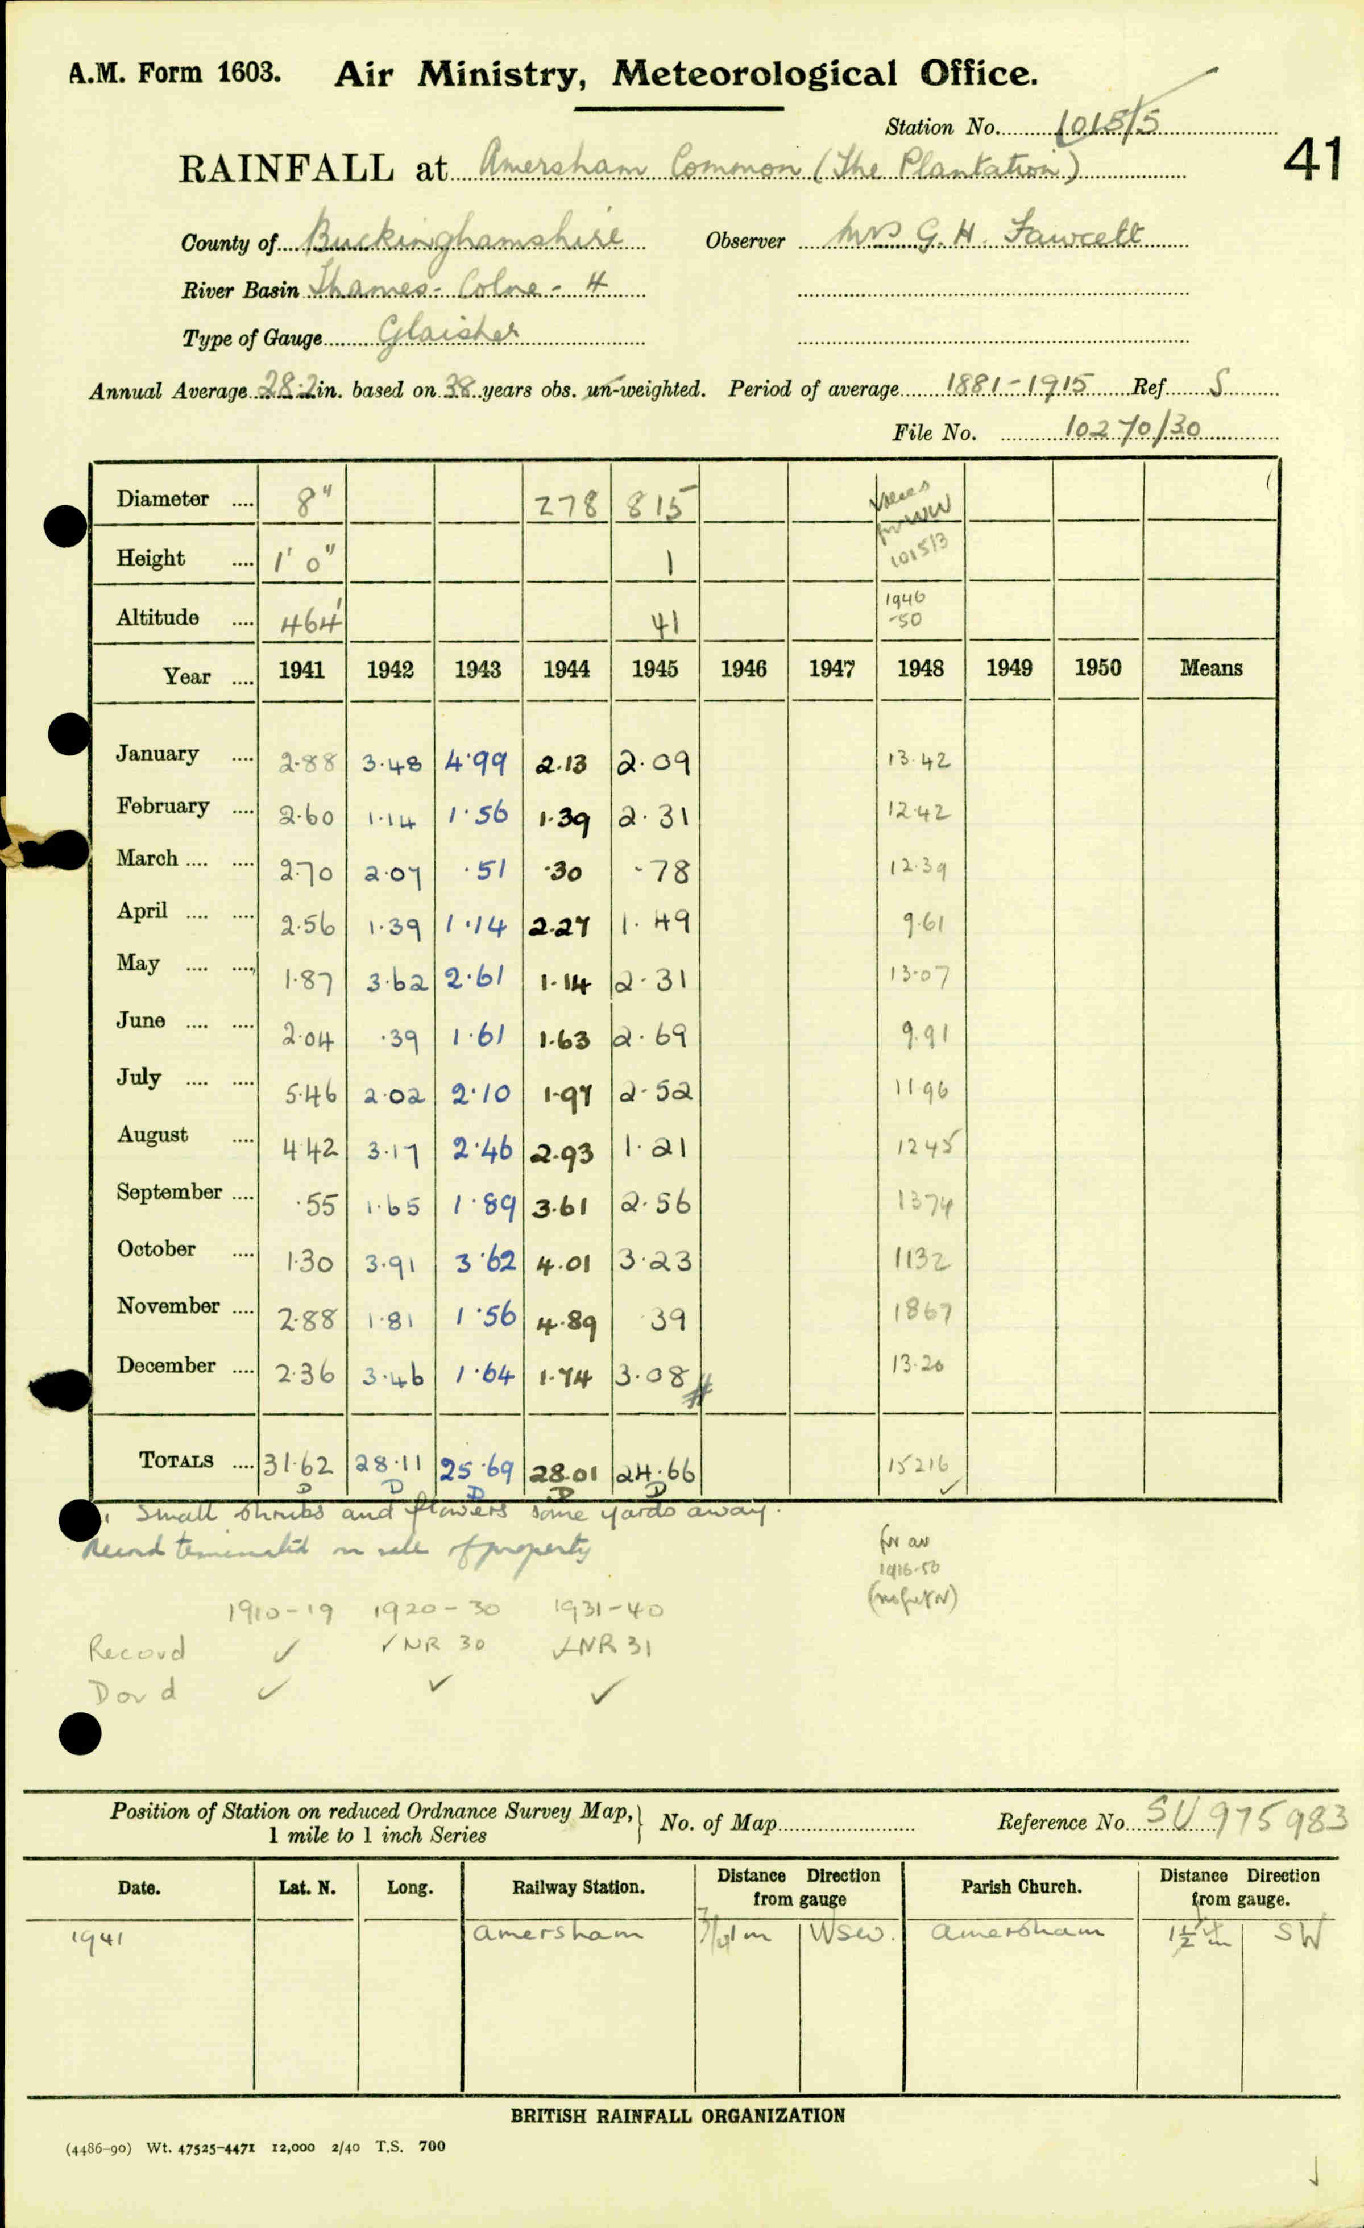 A.M. Form 1603. Air Ministry, Meteorological Office.
Station No. 1015/5
RAINFALL at Amersham Common (The Plantation) 41
County of Buckinghamshire Observer Mrs G. H. Fawcett
River Basin Thames - Colne - H
Type of Gauge Glaisher
Annual Average 28.2 in. based on 38 years obs. un-weighted. Period of average 1881-1915 Ref S
File No. 10270/30
Diameter .... 8" 278 815
Height .... 1' 0" 1 1015/3
Altitude .... 464' 41 1946 -50
Year .... 1941 1942 1943 1944 1945 1946 1947 1948 1949 1950 Means
January .... 2.88 3.48 4.99 2.13 2.09 13.42
February .... 2.60 1.14 1.56 1.39 2.31 12.42
March .... .... 2.70 2.07 .51 .30 .78 12.39
April .... .... 2.56 1.39 1.14 2.27 1.49 9.61
May .... .... 1.87 3.62 2.61 1.14 2.31 13.07
June .... .... 2.04 .39 1.61 1.63 2.69 9.91
July .... .... 5.46 2.02 2.10 1.97 2.52 11.96
August .... 4.42 3.17 2.46 2.93 1.21 12.45
September .... .55 1.65 1.89 3.61 2.56 1374
October .... 1.30 3.91 3.62 4.01 3.23 1132
November .... 2.88 1.81 1.56 4.89 .39 1867
December .... 2.36 3.46 1.64 1.74 3.08 # 13.20
TOTALS .... 31.62 28.11 25.69 28.01 24.66 15216 ✓
D D D D D
Small shrubs and flowers some yards away.
Record terminated on sale of property
for av
1916-50
1910-19 1920-30 1931-40
Record ✓ ✓NR 30 ✓NR 31
Dor d ✓ ✓ ✓
Position of Station on reduced Ordnance Survey Map, 1 mile to 1 inch Series } No. of Map Reference No. SU 975983
Date. Lat. N. Long. Railway Station. Distance Direction from gauge Parish Church. Distance Direction from gauge.
1941 Amersham 3/4 m WSW. Amersham 1½ m SW
BRITISH RAINFALL ORGANIZATION
(4486-90) Wt. 47525-4471 12,000 2/40 T.S. 700